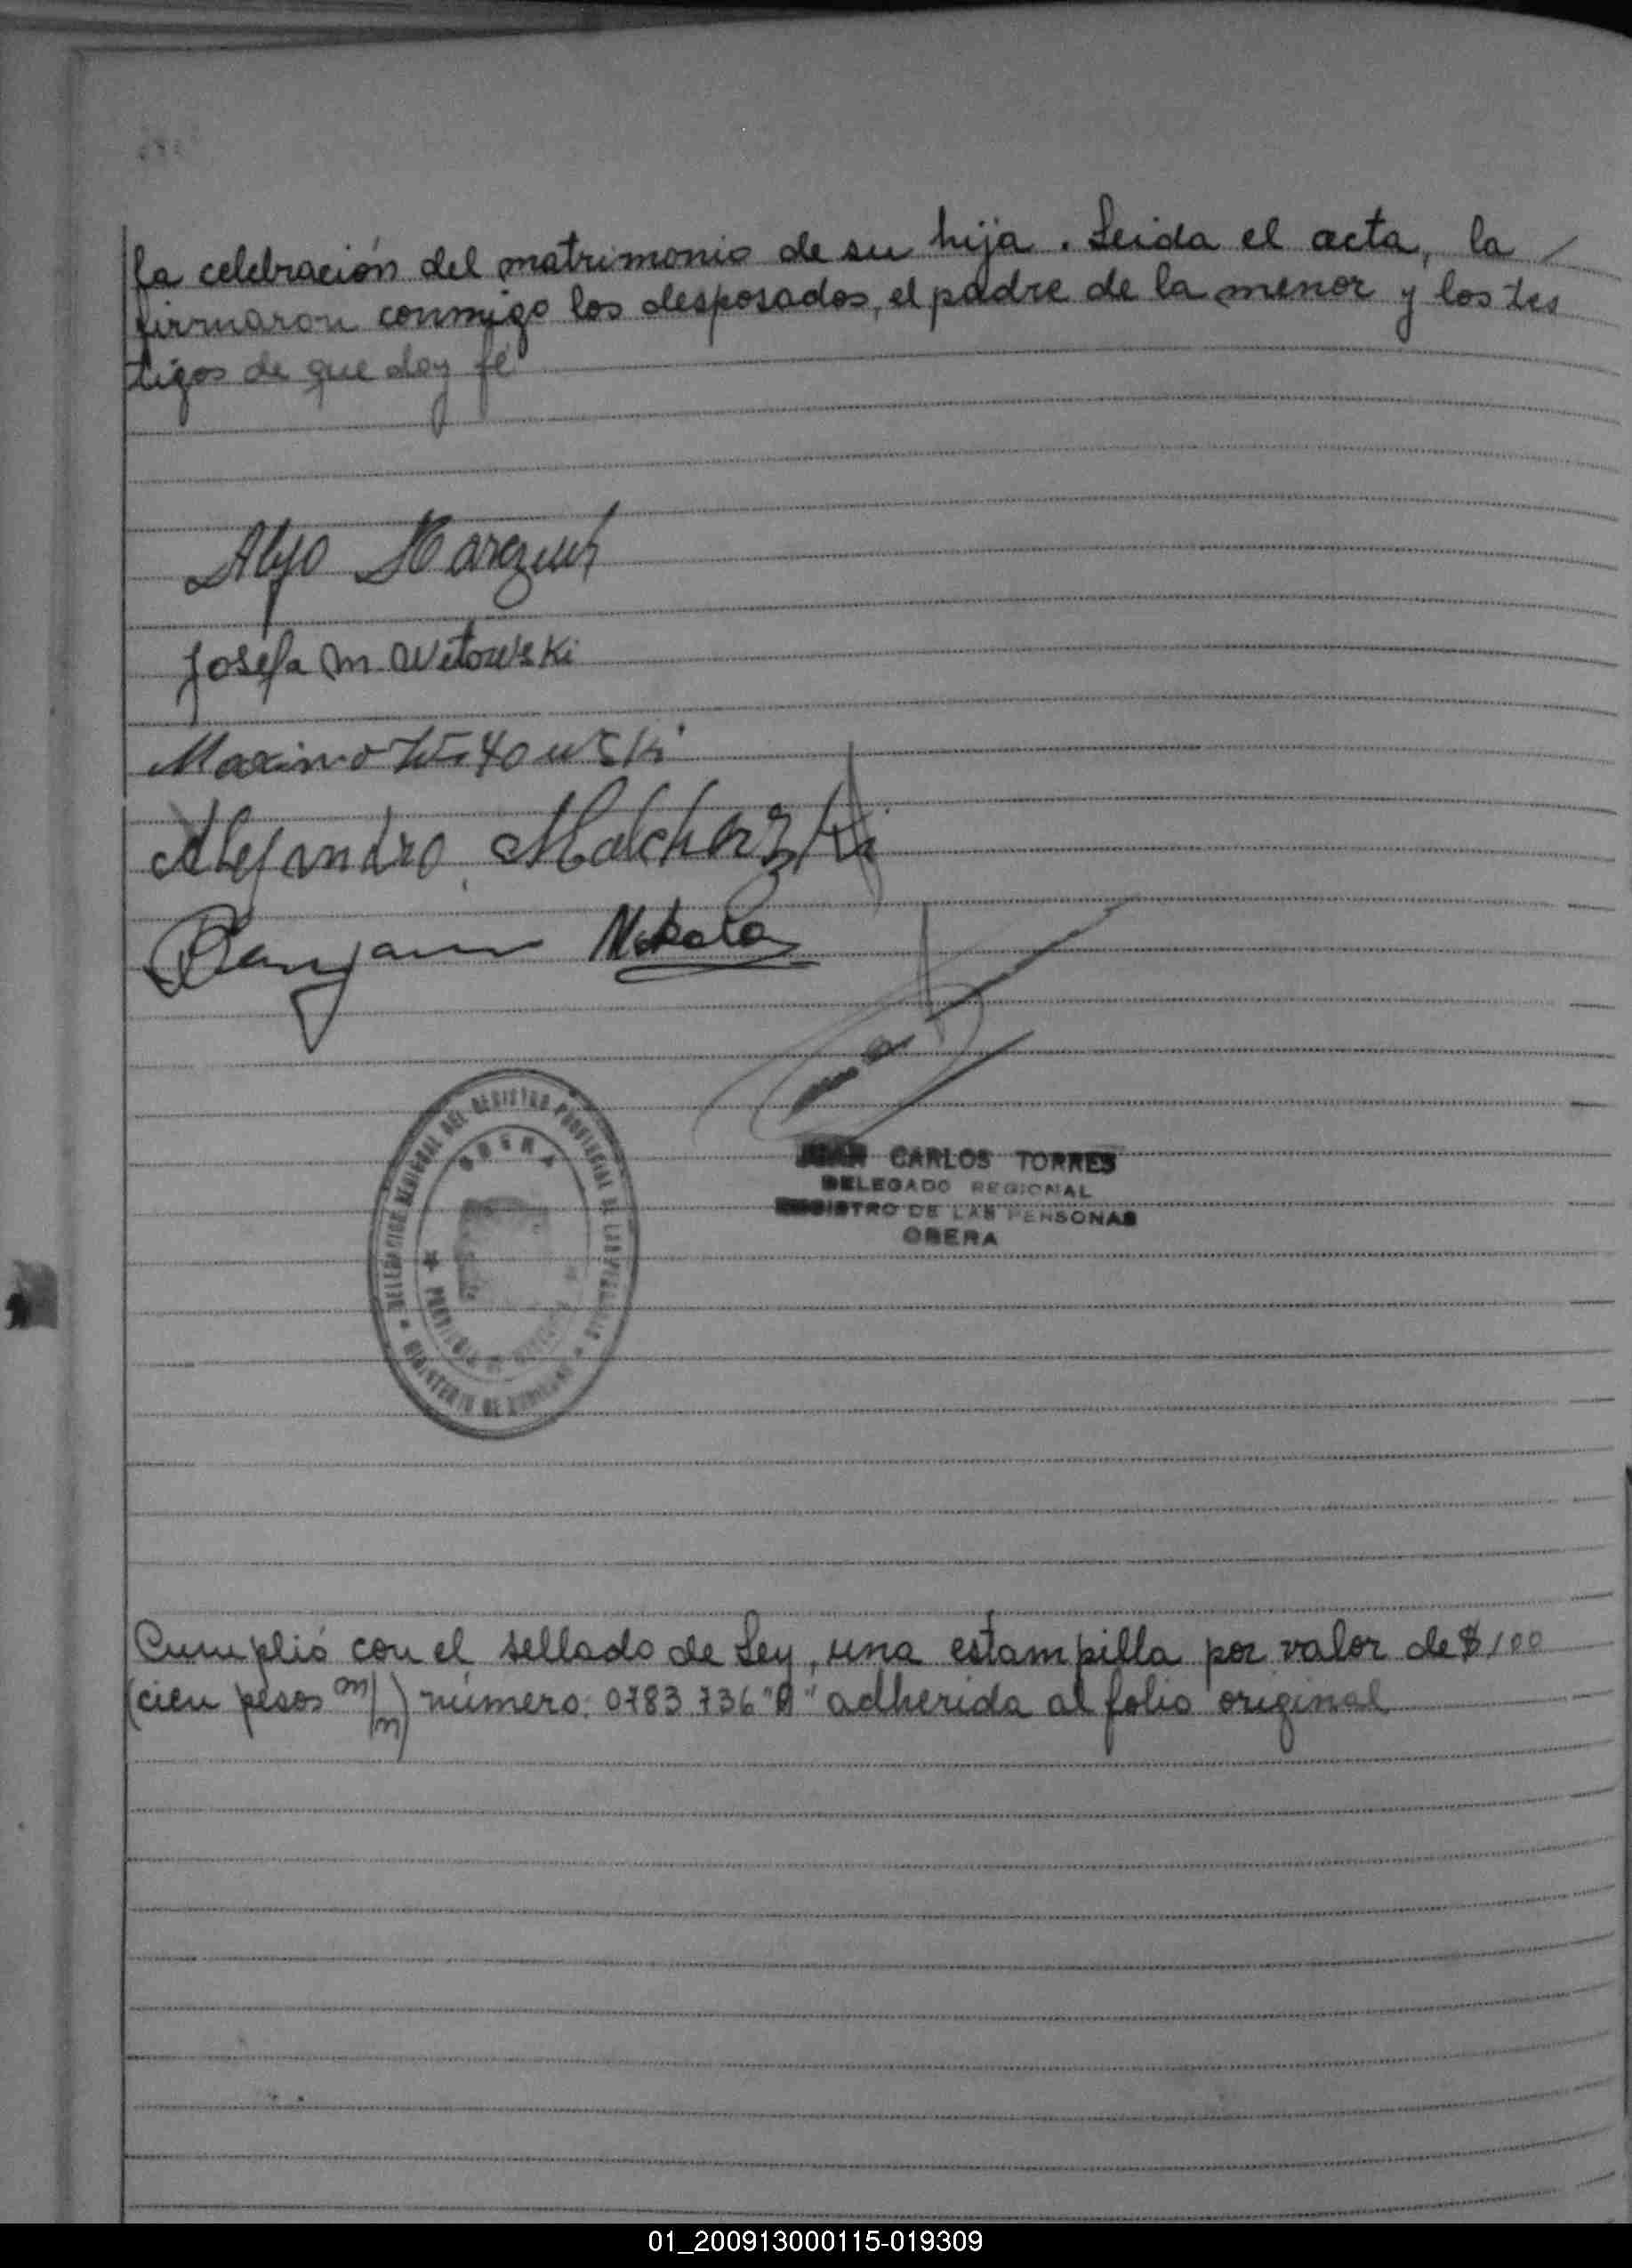 la celebración del matrimonio de su hija. Leida el acta, la /
firmaron conmigo los desposados, el padre de la menor y los tes
tigos de que doy fé
Josefa M. Witowski
Maximo Witowski
Alejandro
Benjamin
DELEGACION REGIONAL DEL REGISTRO PROVINCIAL DE LAS PERSONAS
OBERA
PROVINCIA DE MISIONES
MINISTERIO DE
JUAN CARLOS TORRES
DELEGADO REGIONAL
REGISTRO DE LAS PERSONAS
OBERA
Cumplió con el sellado de Ley, una estampilla por valor de $100
(cien pesos m/n) número: 0783.736 "A" adherida al folio original
01_200913000115-019309